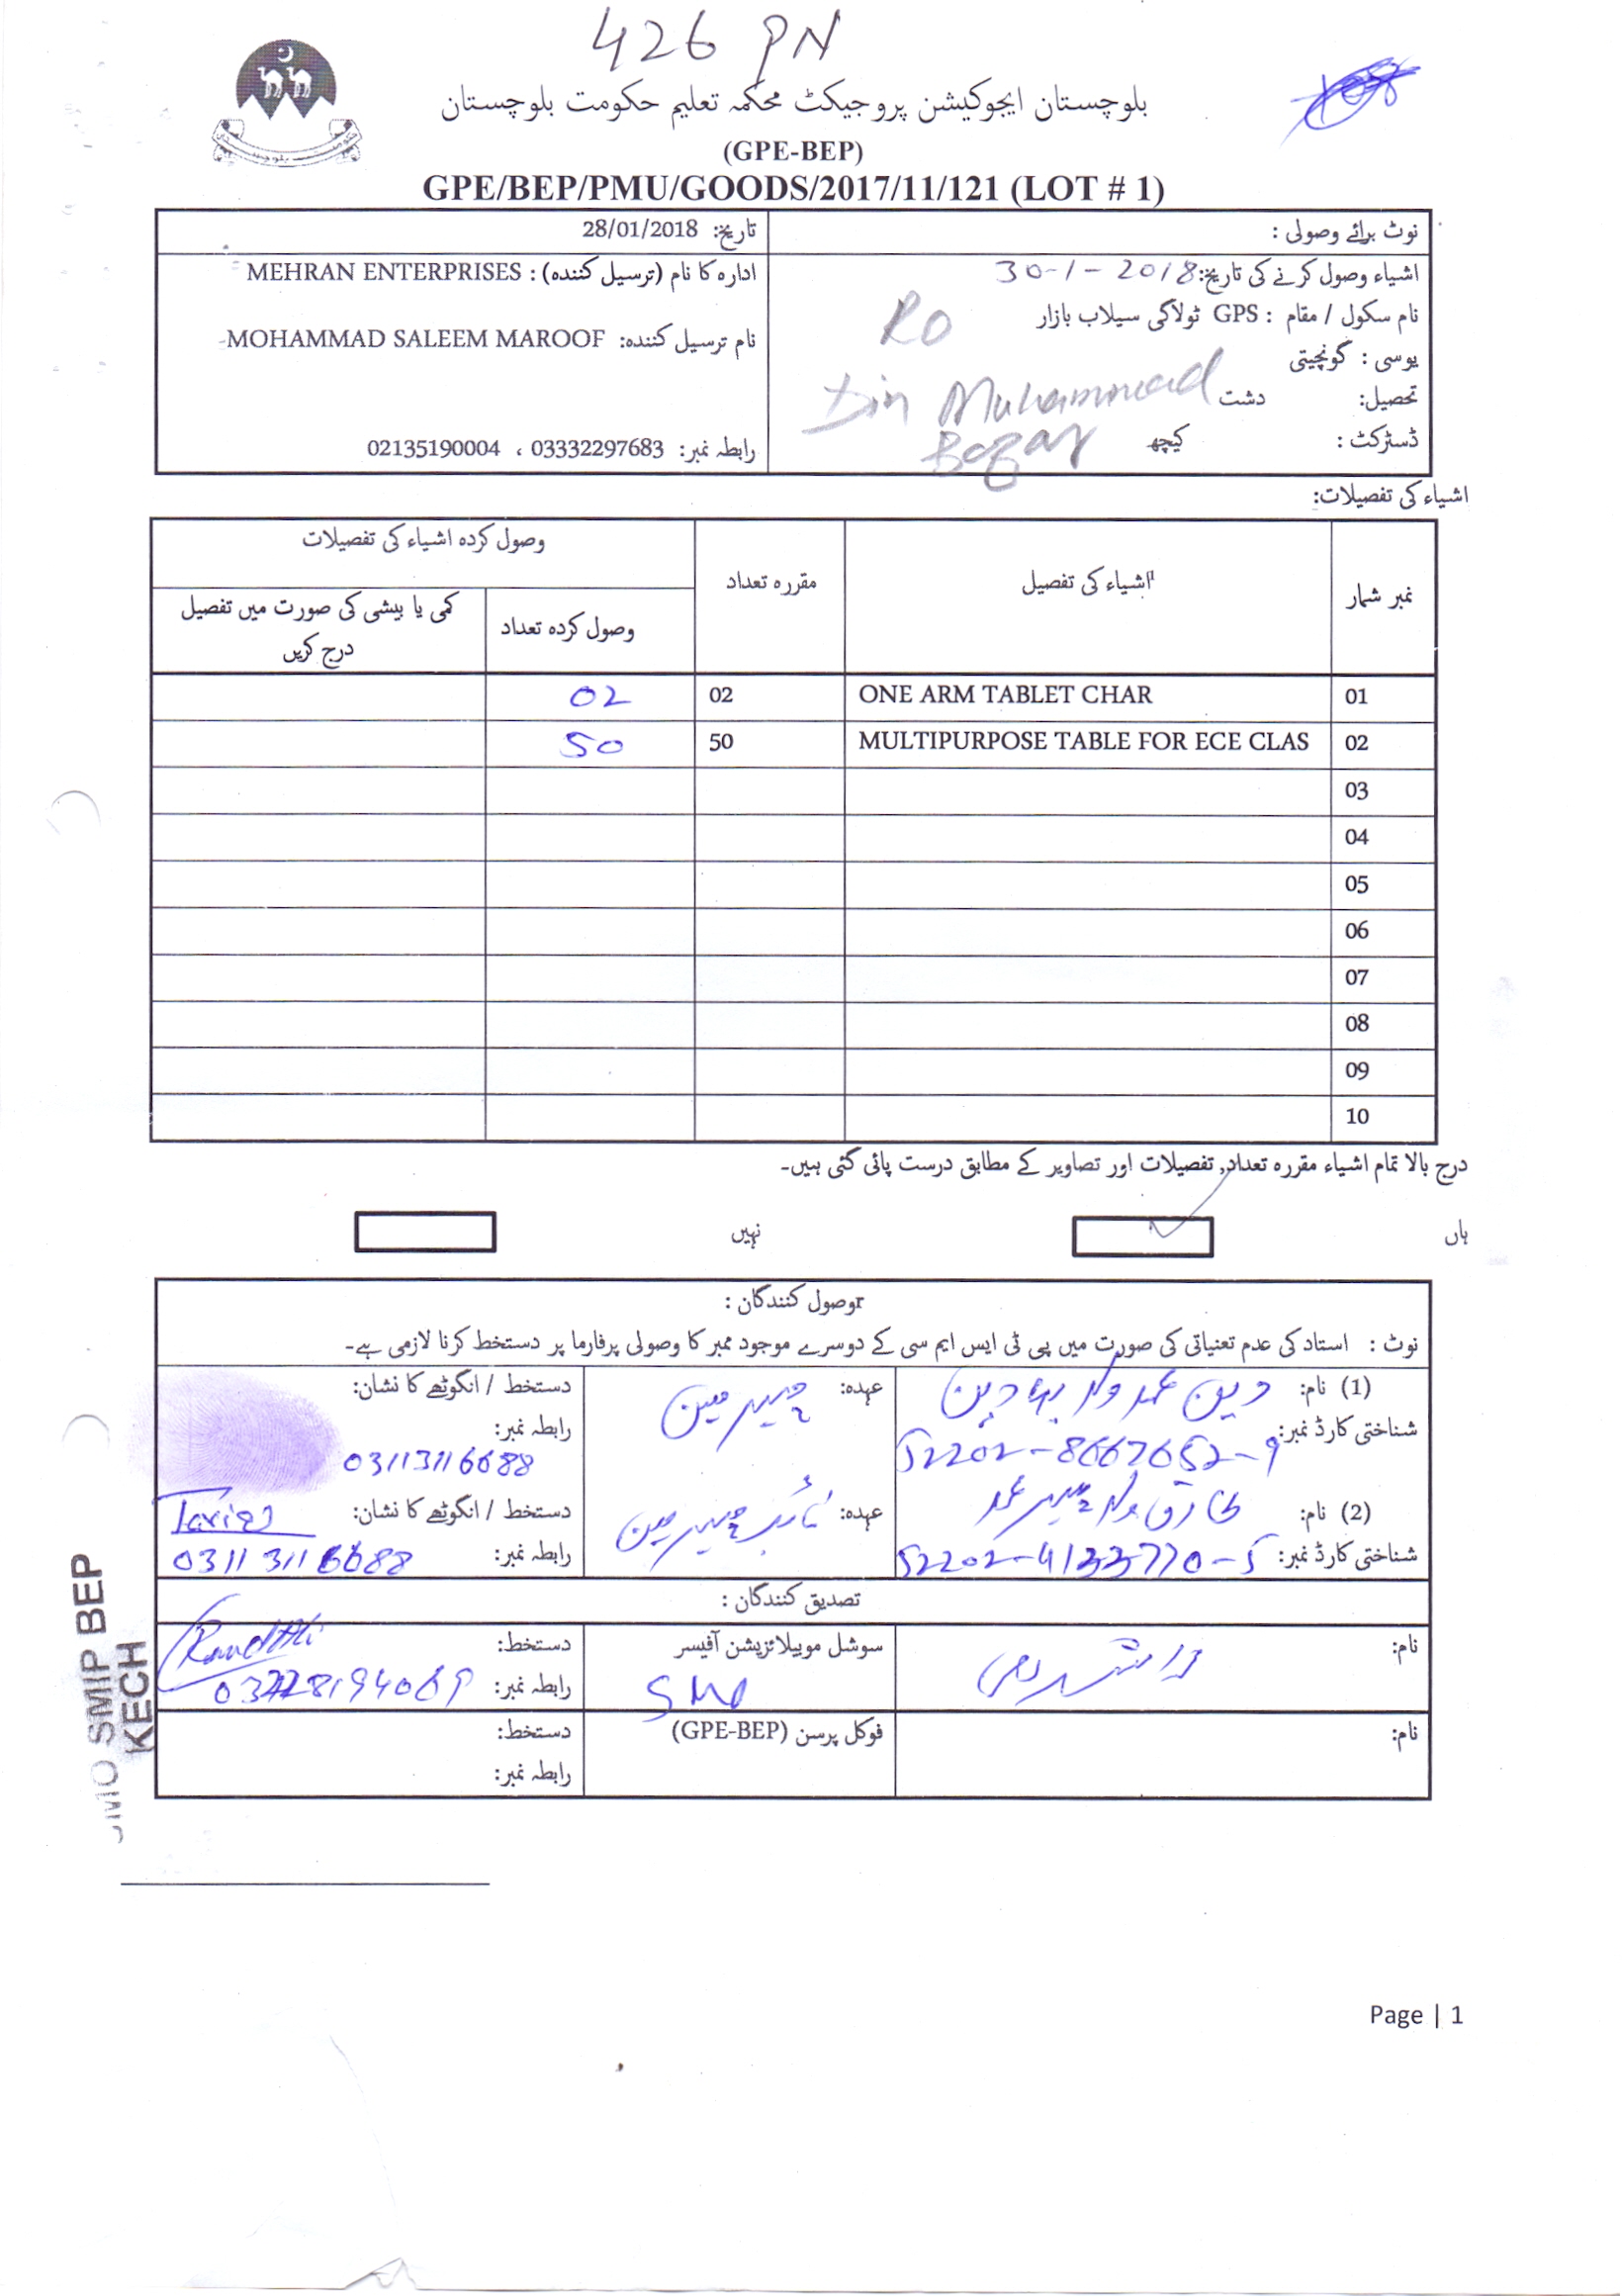 426 PN
بلوچستان ایجوکیشن پروجیکٹ محکمہ تعلیم حکومت بلوچستان
(GPE-BEP)
GPE/BEP/PMU/GOODS/2017/11/121 (LOT # 1)
نوٹ برائے وصولی :
تاریخ: 28/01/2018
اشیاء وصول کرنے کی تاریخ: 30-1-2018
نام سکول / مقام : GPS ٹولاگی سیلاب بازار
RO
یوسی : گونچیتی
تحصیل: دشت
Din Muhammad
ڈسٹرکٹ : کیچھ
Bazar
ادارہ کا نام (ترسیل کنندہ) : MEHRAN ENTERPRISES
نام ترسیل کنندہ: MOHAMMAD SALEEM MAROOF-
رابطہ نمبر: 03332297683 ، 02135190004
اشیاء کی تفصیلات:
نمبر شمار اشیاء کی تفصیل مقررہ تعداد وصول کردہ اشیاء کی تفصیلات
وصول کردہ تعداد کمی یا بیشی کی صورت میں تفصیل
درج کریں
01 ONE ARM TABLET CHAR 02 02
02 MULTIPURPOSE TABLE FOR ECE CLAS 50 50
03
04
05
06
07
08
09
10
درج بالا تمام اشیاء مقررہ تعداد, تفصیلات اور تصاویر کے مطابق درست پائی گئی ہیں۔
ہاں نہیں
وصول کنندگان :
نوٹ : استاد کی عدم تعنیاتی کی صورت میں پی ٹی ایس ایم سی کے دوسرے موجود ممبر کا وصولی پرفارما پر دستخط کرنا لازمی ہے۔
(1) نام: دین محمد ولد عہدہ: چیئرمین دستخط / انگوٹھے کا نشان:
شناختی کارڈ نمبر: 52202-8667652-9 رابطہ نمبر:
03113116688
(2) نام: طارق ولد عہدہ: نائب چیئرمین دستخط / انگوٹھے کا نشان:
شناختی کارڈ نمبر: 52202-4133770-5 رابطہ نمبر: 03113116688
تصدیق کنندگان :
نام: سوشل موبیلائزیشن آفیسر دستخط:
SMO رابطہ نمبر:
نام: فوکل پرسن (GPE-BEP) دستخط:
رابطہ نمبر:
SMO SMIP BEP
KECH
Page | 1